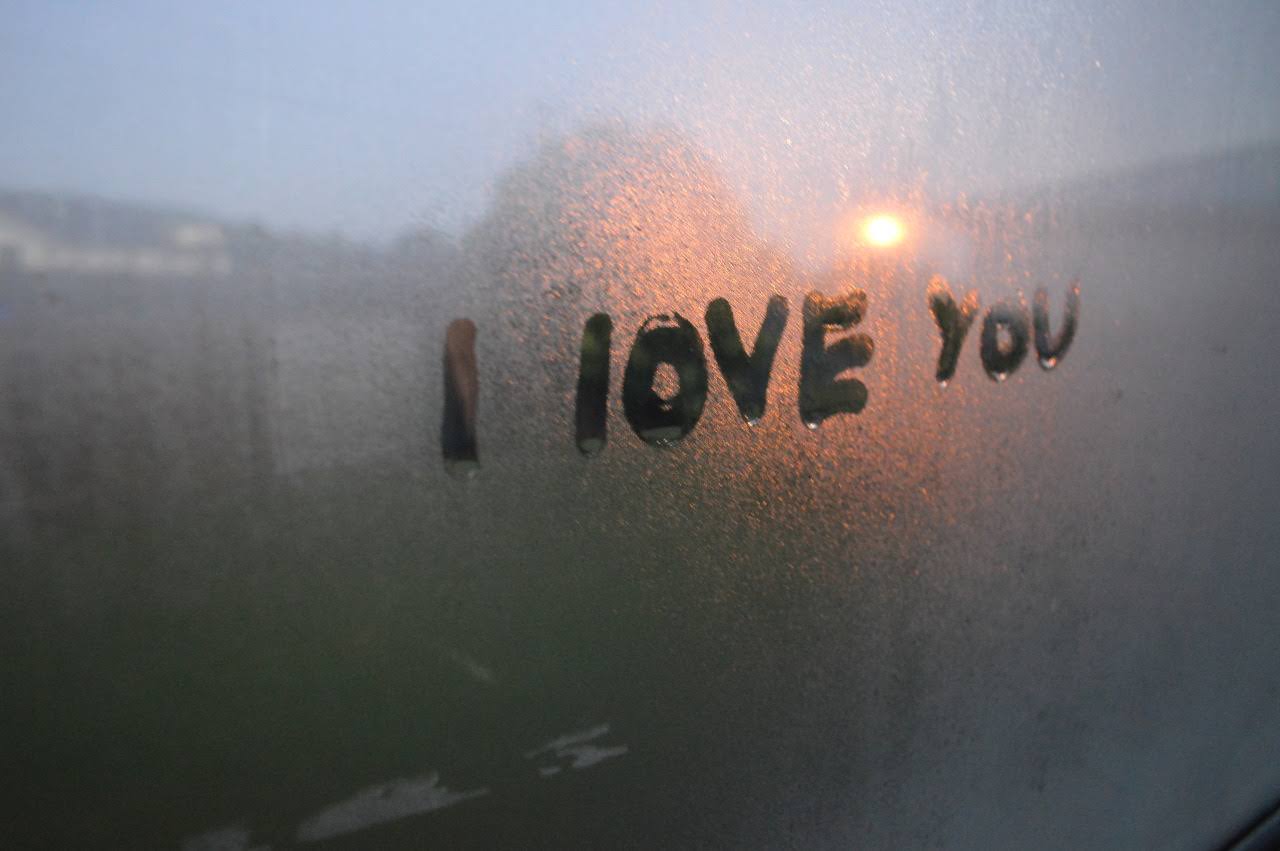 I lOVE YOU